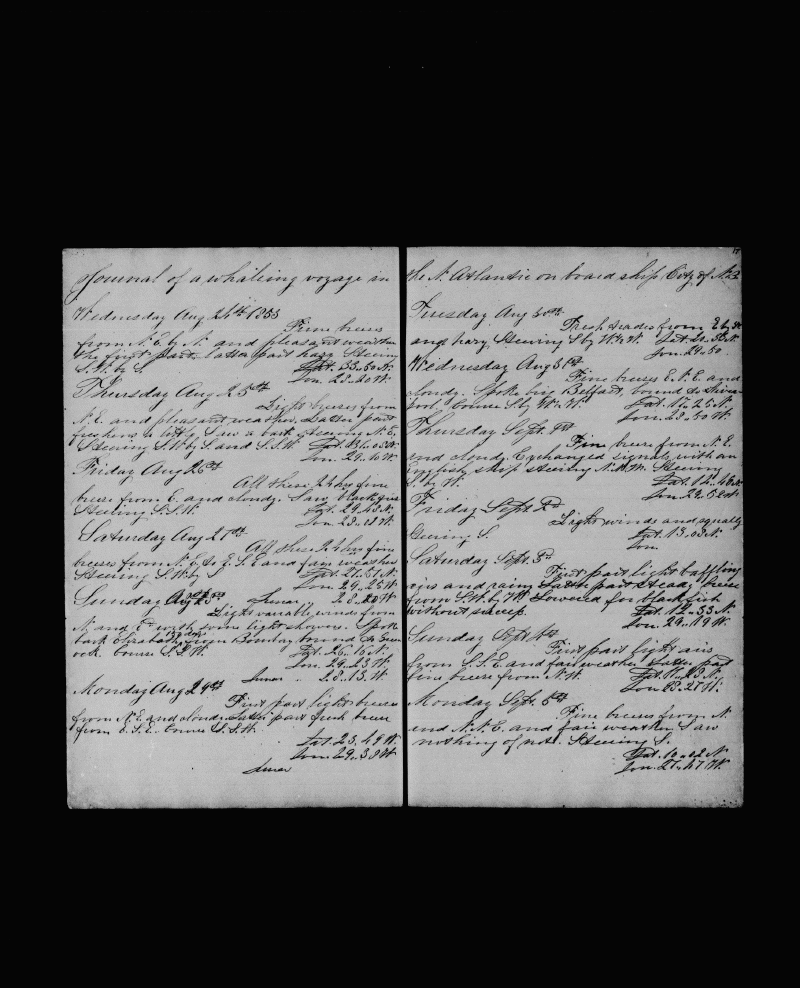 Journal of a whaleing voyage in
Wednesday Aug 24th 1853
Fine breeze
from N. E. by N. and pleasant weather
the first part, latter part hazy Steering
S. W. by S. Lat. 33..50 N.
Lon. 28..20 W.
Thursday Aug 25th
Light breezes from
N. E. and pleasant weather, Latter part
freshens a little, Saw a bark steering N. E.
Steering S.W by S. and S.S.W. Lat. 31..05 N.
Lon. 29..10 W.
Friday Aug 26th
All these 24 hrs fine
breeze from E. and cloudy. Saw blackfish
Steering S.S.W. Lat. 29..43 N.
Lon. 28..18 W.
Saturday Aug 27th
All these 24 hrs fine
breezes from N. E. to E. S. E and fair weather
Steering S.W. by S Lat. 27..51 N.
Lon. 29..25 W.
Sunday Aug 28th Lunar 28..20 W.
Light variable winds from
N. and E. with some light showers. Spoke
bark Elizabeth, from Bombay bound to
Course S.S.W. Lat. 26..16 N.
Lon. 29..23 W.
Lunar .. 28..13 W.
Monday Aug 29th
First part light breeze
from N. E. and cloudy. Latter part fresh breeze
from E. S. E. Course S.S.W.
Lat 23..49 N.
Lon. 29..38 W.
Lunar
17
the N. Atlantic on board ship, City of N.B.
Tuesday Aug 30th
Fresh trades from E by N
and hazy. Steering S by W. & W. Lat. 20..55 N.
Lon. 29..50
Wednesday Aug 31st
Fine breezes E. N. E. and
cloudy. Spoke brig Belfast, bound to Liver
pool, Course S. by W. W. Lat. 17..25 N.
Lon. 28..50 W.
Thursday Sept. 1st
Fine breeze from N. E.
and cloudy. Exchanged signals with an
English ship steering N.N.W. Steering
S. by W. Lat. 14..40 N.
Lon 29..52 W.
Friday Sept. 2d
Light winds and squally
Steering S. Lat. 13..03 N.
Lon.
Saturday Sept. 3d
First part light baffling
airs and rainy Latter part steady breeze
from S.W. by W. Lowered for blackfish
without success. Lat. 12..33 N.
Lon. 29..19 W.
Sunday Sept 4th
First part light airs
from E.S.E. and fair weather Latter part
fine breeze from N. W. Lat. 11..43 N.
Lon 28..27 W.
Monday Sept. 5th
Fine breezes from N.
and N. N. E. and fair weather Saw
nothing of note. Steering S.
Lat. 10..02 N
Lon. 27..47 W.